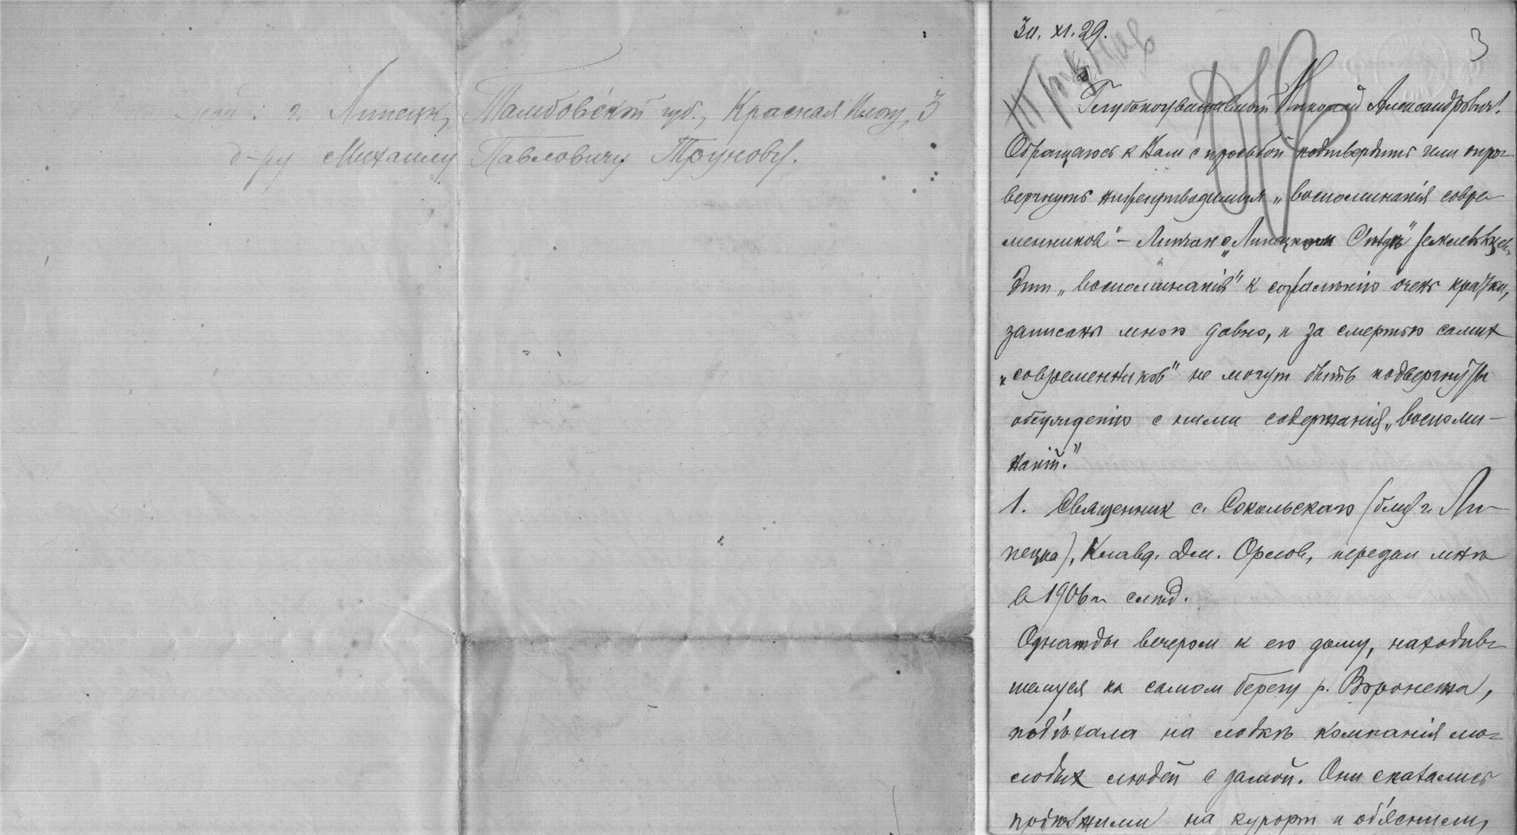 г. Липецк, Тамбовской губ., Красная площ, 3
д-ру Михаилу Павловичу Трунову.
3
30. XI. 29.
Глубокоуважаемый Николай Александрович!
Обращаюсь к Вам с просьбой подтвердить или опро-
вергнуть нижеприводимыя „воспоминанія совре-
менников" – Липчан о „Липецком Съѣздѣ"
Эти „воспоминанія" к сожалѣнію очень кратки,
записаны мною давно, и за смертью самих
„современников" не могут быть подвергнуты
обсужденію с ними содержанія „воспоми-
наній."
1. Священник с. Сокольскаго (близ г. Ли-
пецка), Клавд. Дм. Орлов, передал мнѣ
в 1906 г. слѣд.
Однажды вечером к его дому, находив-
шемуся на самом берегу р. Воронежа,
подъѣхала на лодкѣ компанія мо-
лодых людей с дамой. Они сказались
на курорт и объяснили,